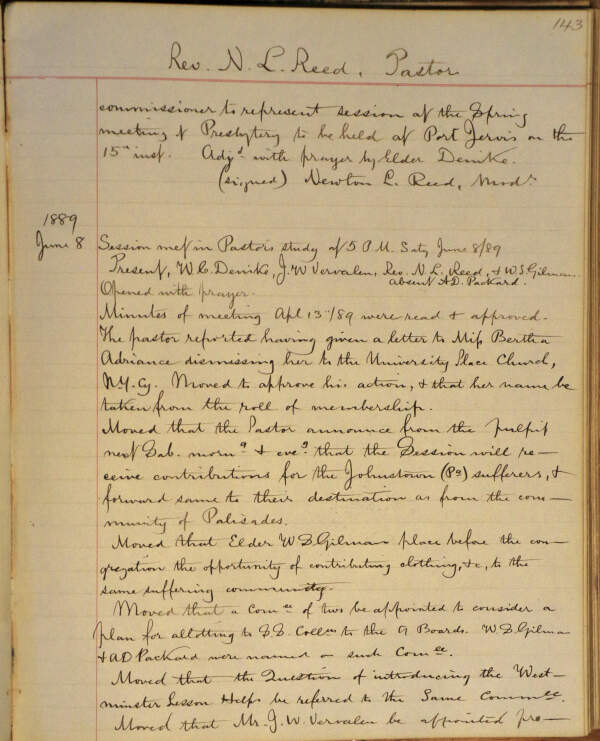 143
Rev. N. L. Reed, Pastor
commissioner to represent session at the Spring
meeting of Presbytery to be held at Port Jervis on the
15th inst. Adjd with prayer by Elder Denike.
(signed) Newton L. Reed, Modr
1889
June 8 Session met in Pastor's study at 5 P.M. Saty June 8/89
Present, W. C. Denike, J. W. Vervalen, Rev. N. L. Reed, & W. S. Gilman.
absent A. D. Packard.
Opened with prayer.
Minutes of meeting Apl 13th/89 were read & approved.
The pastor reported having given a letter to Miss Bertha
Adriance dismissing her to the University Place Church,
N.Y. Cy. Moved to approve his action, & that her name be
taken from the roll of membership.
Moved that the Pastor announce from the pulpit
next Sab. morng & eveg that the Session will re-
ceive contributions for the Johnstown (Pa) sufferers, &
forward same to their destination as from the com-
munity of Palisades.
Moved that Elder W. S. Gilman place before the con-
gregation the opportunity of contributing clothing, &c, to the
same suffering community.
Moved that a Comee of two be appointed to consider a
plan for allotting to S.S. Collns to the 9 Boards. W. S. Gilman
& A D Packard were named as such Comee.
Moved that the Question of introducing the West-
minster Lesson Helps be referred to the Same Commee.
Moved that Mr. J. W. Vervalen be appointed pro-